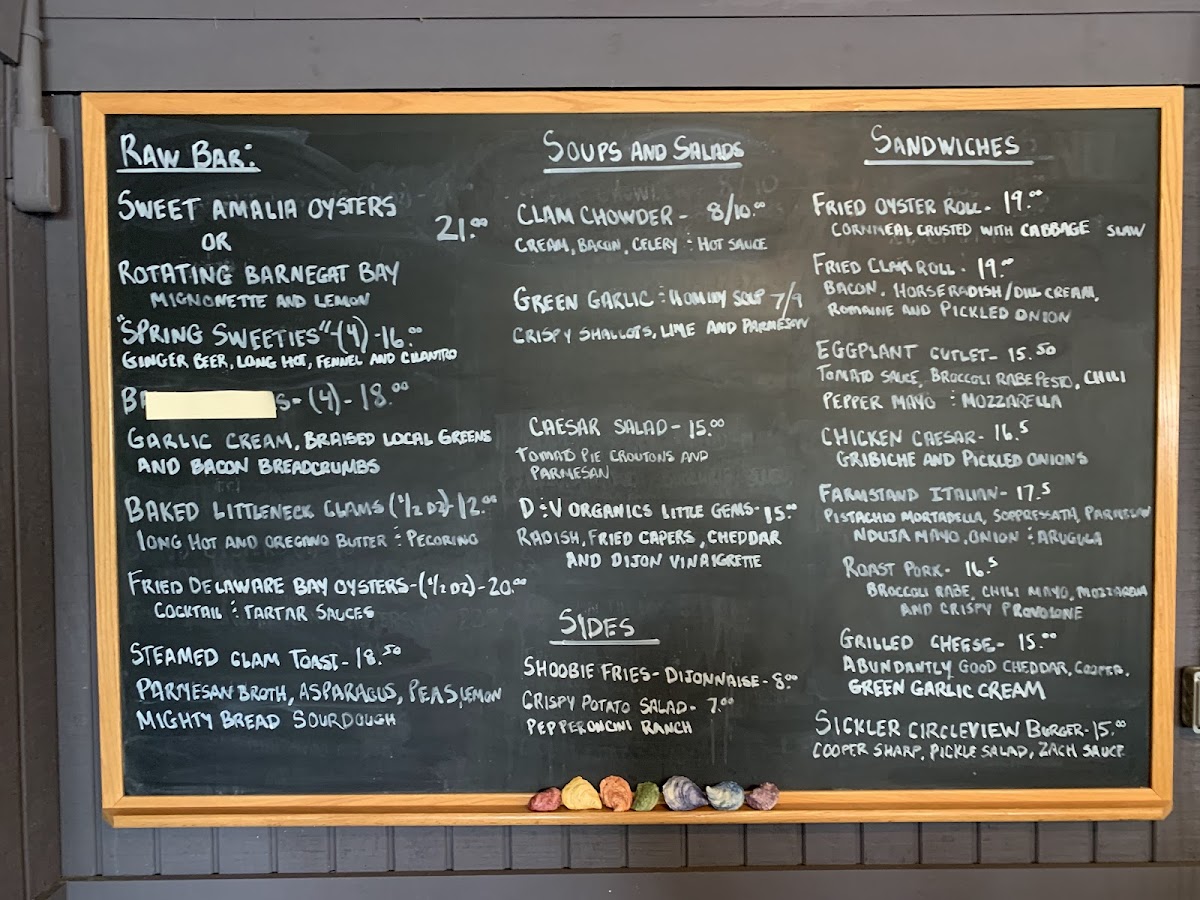 RAW BAR:
SWEET AMALIA OYSTERS
OR
21.00
ROTATING BARNEGAT BAY
MIGNONETTE AND LEMON
"SPRING SWEETIES"-(4)-16.00
GINGER BEER, LONG HOT, FENNEL AND CILANTRO
(4)-18.00
GARLIC CREAM, BRAISED LOCAL GREENS
AND BACON BREADCRUMBS
BAKED LITTLENECK CLAMS (1/2 DZ)-12.00
LONG HOT AND OREGANO BUTTER : PECORINO
FRIED DELAWARE BAY OYSTERS-(1/2 DZ)-20.00
COCKTAIL : TARTAR SAUCES
STEAMED CLAM TOAST-18.50
PARMESAN BROTH, ASPARAGUS, PEAS, LEMON
MIGHTY BREAD SOURDOUGH
SOUPS AND SALADS
CLAM CHOWDER - 8/10.00
CREAM, BACON, CELERY : HOT SAUCE
GREEN GARLIC : HOMINY SOUP 7/9
CRISPY SHALLOTS, LIME AND PARMESAN
CAESAR SALAD-15.00
TOMATO PIE CROUTONS AND
PARMESAN
D:V ORGANICS LITTLE GEMS-15.00
RADISH, FRIED CAPERS, CHEDDAR
AND DIJON VINAIGRETTE
SIDES
SHOOBIE FRIES-DIJONNAISE-8.00
CRISPY POTATO SALAD- 7.00
PEPPERONCINI RANCH
SANDWICHES
FRIED OYSTER ROLL- 19.00
CORNMEAL CRUSTED WITH CABBAGE SLAW
FRIED CLAM ROLL- 19.00
BACON, HORSERADISH/DILL CREAM,
ROMAINE AND PICKLED ONION
EGGPLANT CUTLET-15.50
TOMATO SAUCE, BROCCOLI RABE PESTO, CHILI
PEPPER MAYO : MOZZARELLA
CHICKEN CAESAR- 16.5
GRIBICHE AND PICKLED ONIONS
FARMSTAND ITALIAN- 17.5
PISTACHIO MORTADELLA, SOPPRESSATA, PARMESAN
NDUJA MAYO, ONION : ARUGULA
ROAST PORK- 16.5
BROCCOLI RABE, CHILI MAYO, MOZZARELLA
AND CRISPY PROVOLONE
GRILLED CHEESE- 15.00
ABUNDANTLY GOOD CHEDDAR, COOPER,
GREEN GARLIC CREAM
SICKLER CIRCLEVIEW BURGER-15.00
COOPER SHARP, PICKLE SALAD, ZACH SAUCE